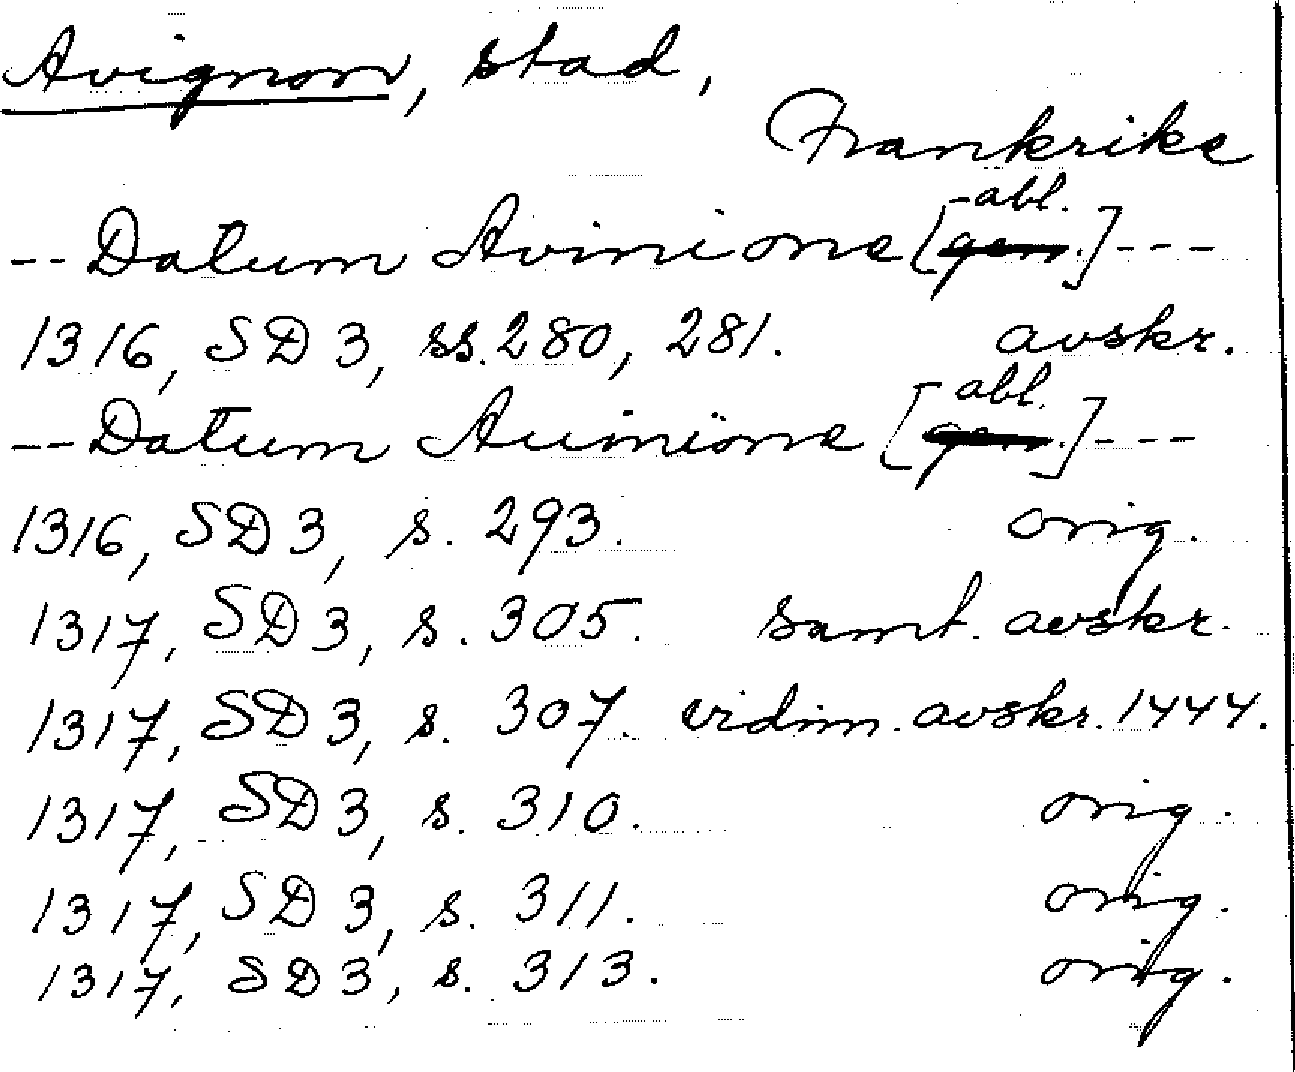 Avignon, stad,
Frankrike
-- Datum Avinione [abl. gen.] ---
1316, SD 3, ss. 280, 281. avskr.
-- Datum Auinione [abl. gen.] ---
1316, SD 3, s. 293. orig.
1317, SD 3, s. 305. samt. avskr.
1317, SD 3, s. 307. vidim. avskr. 1444.
1317, SD 3, s. 310. orig.
1317, SD 3, s. 311. orig.
1317, SD 3, s. 313. orig.